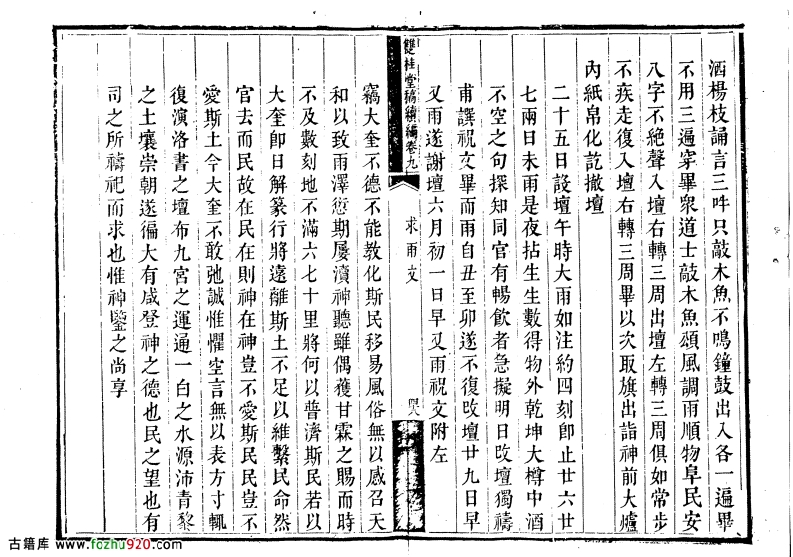 洒楊枝誦言三吽只敲木魚不鳴鐘鼓出入各一遍畢
不用三遍穿畢衆道士敲木魚頌風調雨順物阜民安
八字不絕聲入壇右轉三周出壇左轉三周俱如常步
不疾走復入壇右轉三周畢以次取旗出詣神前大爐
內紙帛化訖撤壇
二十五日設壇午時大雨如注約四刻卽止廿六廿
七兩日未雨是夜拈生生數得物外乾坤大樽中酒
不空之句探知同官有暢飲者急擬明日改壇獨禱
甫譔祝文畢而雨自丑至卯遂不復改壇廿九日早
又雨遂謝壇六月初一日早又雨祝文附左
雙桂堂稿續編卷九
求雨文
竊大奎不德不能教化斯民移易風俗無以感召天
和以致雨澤愆期屢瀆神聽雖偶獲甘霖之賜而時
不及數刻地不滿六七十里將何以普濟斯民若以
大奎卽日解篆行將遠離斯土不足以維繫民命然
官去而民故在民在則神在神豈不愛斯民民豈不
愛斯土今大奎不敢弛誠惟懼空言無以表方寸輒
復演洛書之壇布九宮之運通一白之水源沛青黎
之土壤崇朝遂徧大有咸登神之德也民之望也有
司之所禱祀而求也惟神鑒之尚享
古籍库 www.fozhu920.com